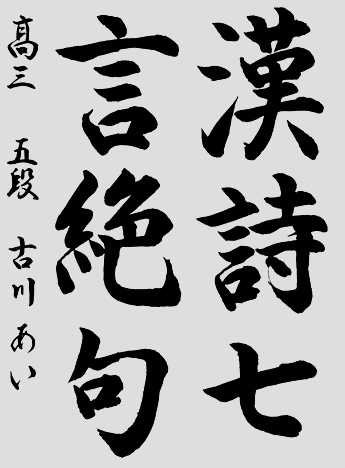 漢詩七
言絶句
高三 五段 古川あい